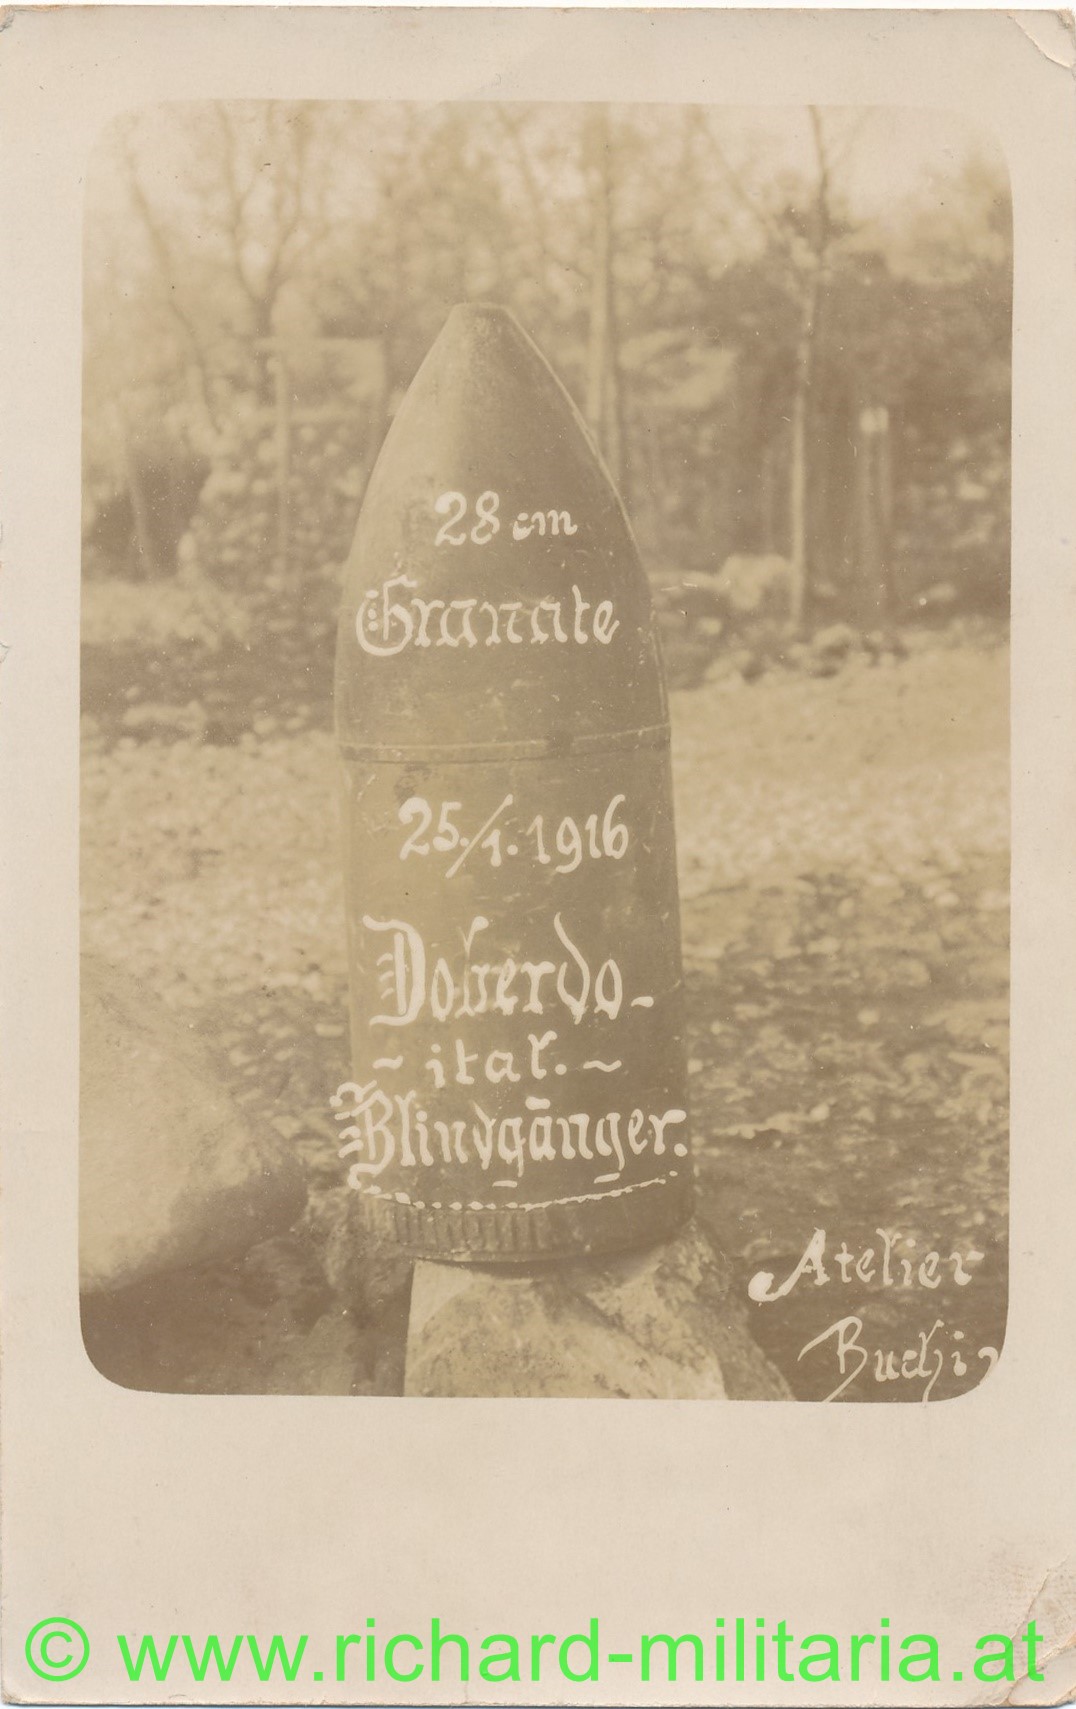 28 cm
Granate
25./1. 1916
Doberdo-
~ ital. ~
Blindgänger.
Atelier
© www.richard-militaria.at